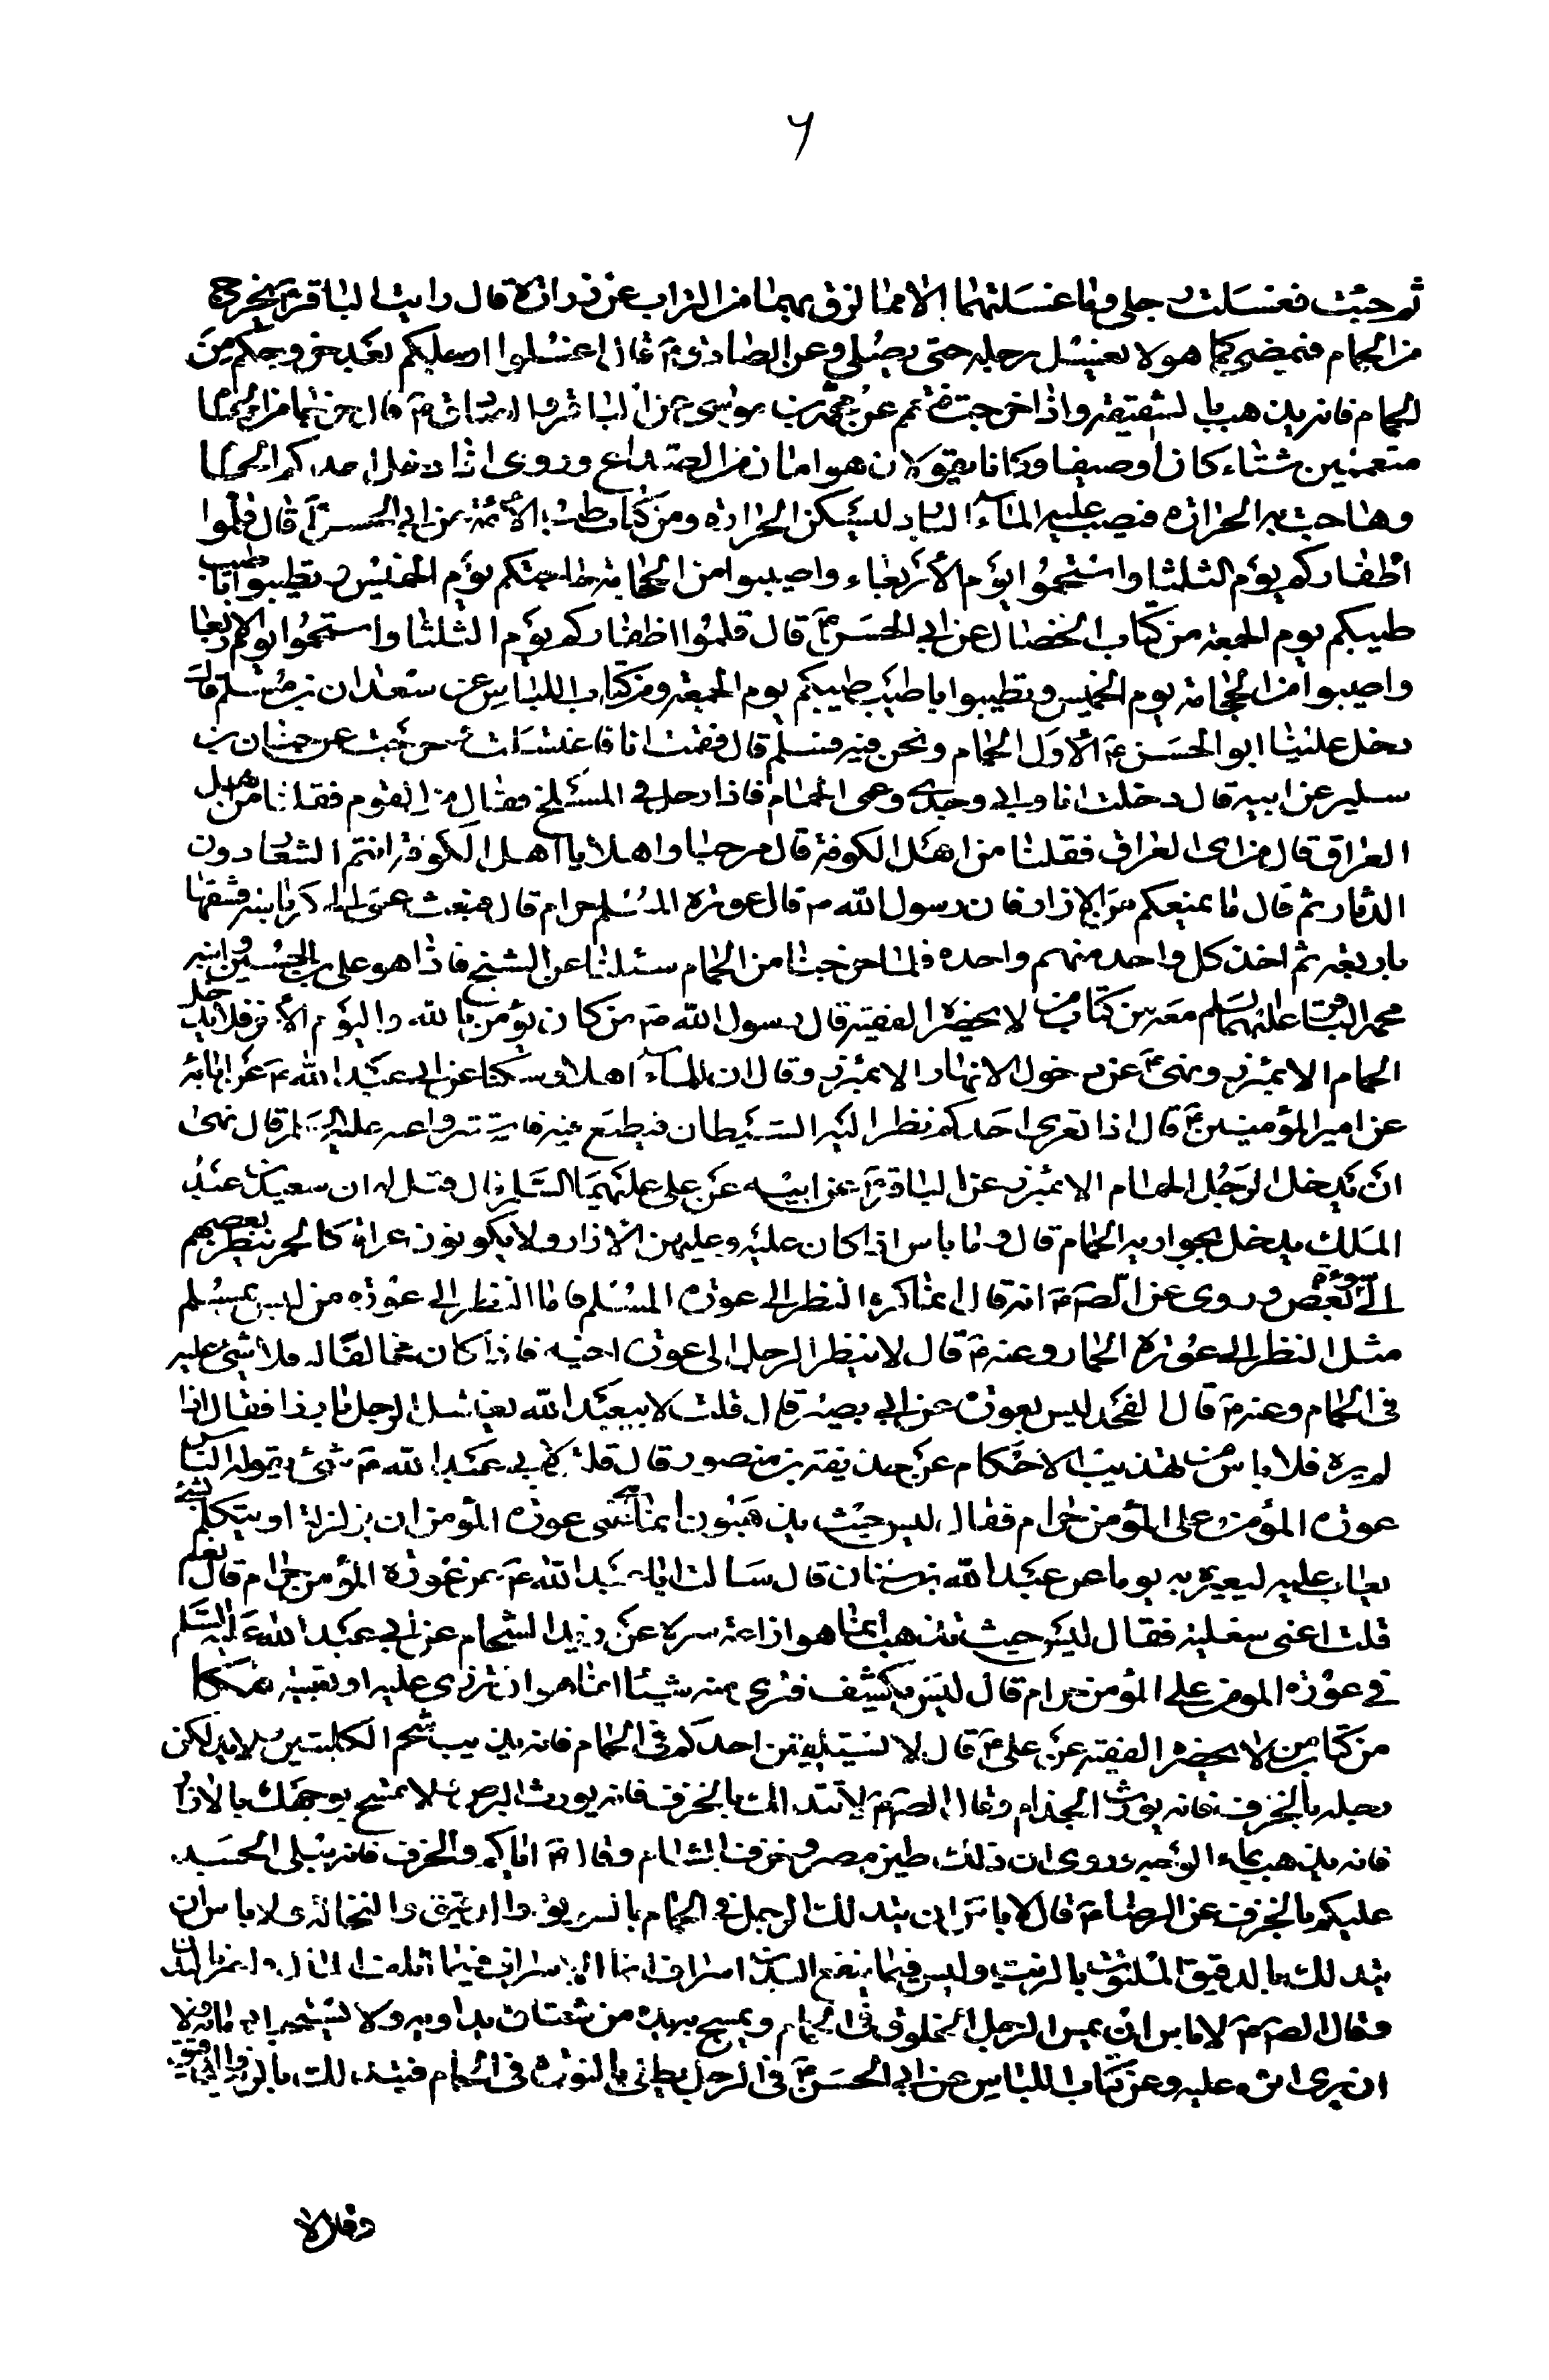 ٦
ثم جئت فغسلت رجلي وما غسلتهما الا مما لزق بهما من التراب عن زرارة قال رايت الباقر ع يخرج
من الحمام فيمضي كما هو لا يغسل رجليه حتى يصلي وعن الصادق ع قال اغسلوا ارجلكم بعد خروجكم من
الحمام فانه يذهب بالشقيقة واذا خرجت فتعمم عن محمد بن موسى عن الباقر والصادق ع قال خرجا من الحمام
متعممين شتاء كان او صيفا وكانا يقولان هو امان من الصداع وروى اذا دخل احدكم الحمام
وهاجت به الحرارة فليصب عليه الماء البارد ليسكن الحرارة ومن كتاب طب الأئمة عن ابي الحسن ع قال قلموا
اظفاركم يوم الثلثا واستحموا يوم الأربعاء واصيبوا من الحجامة حاجتكم يوم الخميس وتطيبوا باطيب
طيبكم يوم الجمعة من كتاب الخصال عن ابي الحسن ع قال قلموا اظفاركم يوم الثلثا واستحموا يوم الاربعا
واصيبوا من الحجامة يوم الخميس وتطيبوا باطيب طيبكم يوم الجمعة ومن كتاب اللباس عن سعدان بن مسلم قال
دخل علينا ابو الحسن ع الأول الحمام ونحن فيه فسلم قال فقمت انا فاغتسلت وخرجت عن حنان بن
سدير عن ابيه قال دخلت انا وابي وجدي وعمي الحمام فاذا رجل في المسلخ فقال من القوم فقلنا من اهل
العراق قال من اي العراق فقلنا من اهل الكوفة قال مرحبا واهلا يا اهل الكوفة انتم الشعار دون
الدثار ثم قال ما يمنعكم من الازار فان رسول الله ص قال عورة المسلم حرام قال فبعث عمي الى كرباسة فشقها
باربعة ثم اخذ كل واحد منهم واحدة فلما خرجنا من الحمام سئلنا عن الشيخ فاذا هو علي بن الحسين وابنه
محمد الباقر عليهما السلم معه من كتاب من لا يحضره الفقيه قال رسول الله ص من كان يؤمن بالله واليوم الآخر فلا يدخل
الحمام الا بمئزر ونهى ع عن دخول الانهار الا بمئزر وقال ان للماء اهلا وسكنا عن ابي عبد الله ع عن ابائه
عن امير المؤمنين ع قال اذا تعرى احدكم نظر اليه الشيطان فيطمع فيه فاستتروا عنه عليه السلم قال نهى
ان يدخل الرجل الحمام الا بمئزر عن الباقر ع عن ابيه عن علي عليهما السلم قال قيل له ان سعيد بن عبد
الملك يدخل بجواريه الحمام قال وما باس اذا كان عليه وعليهن الازار ولا يكونون عراة كالحمر ينظر بعضهم
الى سوءة بعض وروى عن الصادق ع انه قال انما كره النظر الى عورة المسلم فاما النظر الى عورة من ليس بمسلم
مثل النظر الى عورة الحمار وعنه ع قال لا ينظر الرجل الى عورة اخيه فاذا كان مخالفا له فلا شيء عليه
في الحمام وعنه ع قال الفخذ ليس بعورة عن ابي بصير قال قلت لابي عبد الله يغتسل الرجل بارزا فقال اذا
لم يره فلا باس من تهذيب الاحكام عن حذيفة بن منصور قال قلت لابي عبد الله ع شيء يقوله الناس
عورة المؤمن على المؤمن حرام فقال ليس حيث يذهبون انما عنى عورة المؤمن ان يزل زلة او يتكلم بشيء
يعاب عليه ليعيره به يوما عن عبد الله بن سنان قال سالت ابا عبد الله ع عن عورة المؤمن حرام قال نعم
قلت اعني سفليه فقال ليس حيث تذهب انما هو اذاعة سره عن زيد الشحام عن ابي عبد الله عليه السلم
في عورة المؤمن على المؤمن حرام قال ليس ان يكشف فترى منه شيئا انما هو ان تزري عليه او تعيبه
من كتاب من لا يحضره الفقيه عن علي ع قال لا يستلقين احدكم في الحمام فانه يذيب شحم الكليتين ولا يدلكن
رجليه بالخزف فانه يورث الجذام وقال الصادق ع لا تتدلك بالخزف فانه يورث البرص ولا تمسح وجهك بالازار
فانه يذهب بماء الوجه وروى ان ذلك طين مصر وخزف الشام وقال ع اياكم والخزف فانه يبلي الجسد
عليكم بالخرق عن الرضا ع قال لا باس ان يتدلك الرجل في الحمام بالسويق والدقيق والنخالة ولا باس ان
يتدلك بالدقيق الملتوت بالزيت وليس فيما ينفع البدن اسراف انما الاسراف فيما اتلف المال واضر بالبدن
وقال الصادق ع لا باس ان يمس الرجل الخلوق في الحمام ويمسح به يده من شقاق يداويه ولا يستحب ادمانه ولا
ان يرى اثره عليه وعن كتاب اللباس عن ابي الحسن ع في الرجل يطلي بالنورة في الحمام فيتدلك بالزيت والدقيق
وقال لا